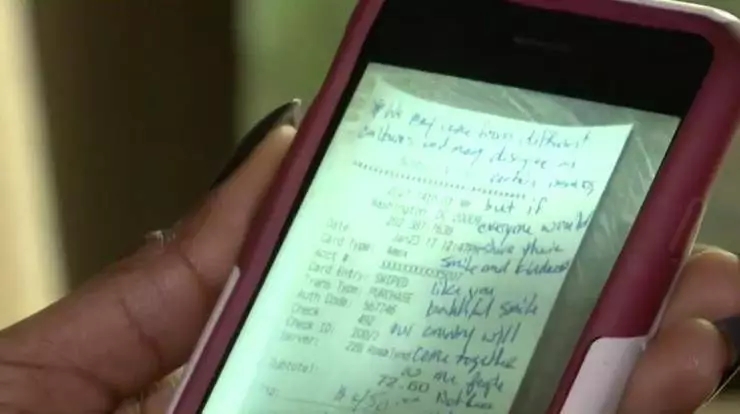 "We may come from different
cultures and may disagree on
certain issues,
but if
Washington, DC 20009
everyone would
202 387-7638
share their
Date: Jan23'17
smile and kindness
Card Type: Amex
Acct #:
like you
Card Entry: SWIPED
beautiful smile
Trans Type: PURCHASE
our country will
Auth Code: 567746
Check
come together
Check ID:
Server: 228 Rosalynd
as one people
Subtotal: 72.60
Not race
$450.00